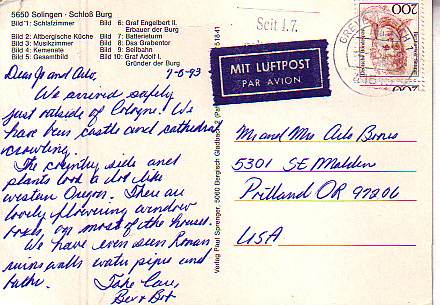 5650 Solingen - Schloß Burg
Bild 1: Schlafzimmer
Bild 2: Altbergische Küche
Bild 3: Musikzimmer
Bild 4: Kemenate
Bild 5: Gesamtbild
Bild 6: Graf Engelbert II.
Erbauer der Burg
Bild 7: Batterieturm
Bild 8: Das Grabentor
Bild 9: Seilbahn
Bild 10: Graf Adolf I.
Gründer der Burg
7-6-93
Dear Jo and Arlo,
We arrived safely
just outside of Cologne. We
have been castle and cathedral
crawling.
The country side and
plants look a lot like
western Oregon. There are
lovely flowering window
boxes on most of the houses.
We have even seen Roman
ruins walls water pipes and
baths.
Take Care,
Bev & Bob
Verlag Paul Sprenger, 5060 Bergisch Gladbach 2
Seit 1.7.
MIT LUFTPOST
PAR AVION
200
Mr and Mrs Arlo Bones
5301 SE Malden
Portland OR 97206
USA